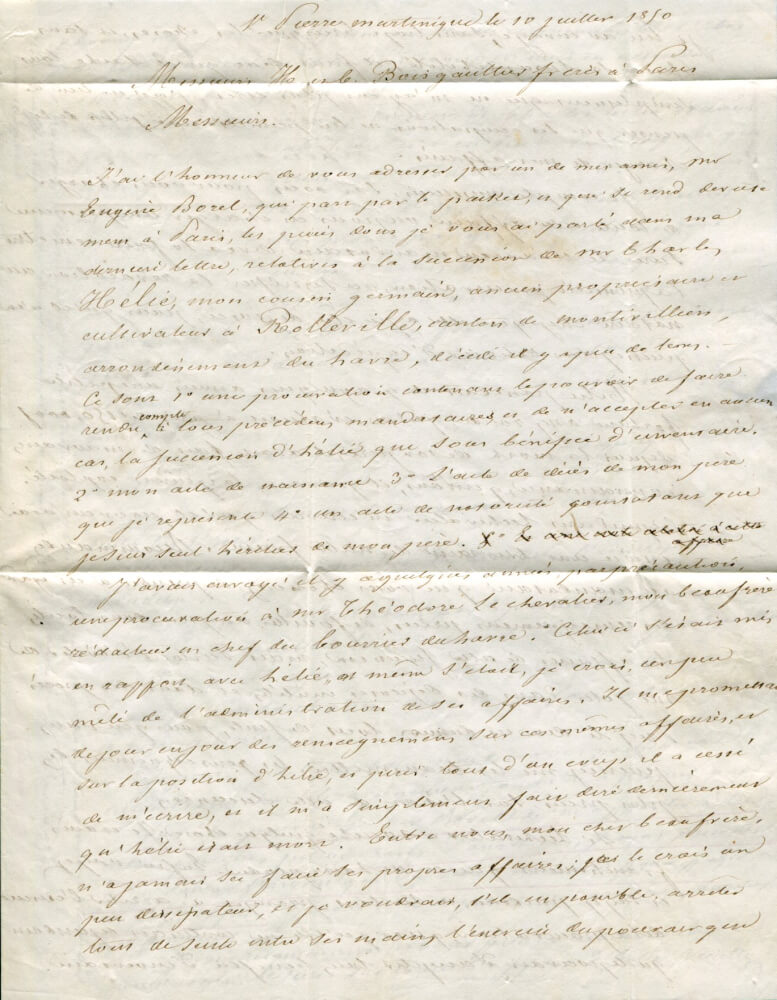 St Pierre martinique le 10 juillet 1850
Messieurs H et Ch. Boisgaultier frères à Paris
Messieurs.
J'ai l'honneur de vous adresser par un de mes amis, mr
Eugène Borel, qui part par le packet, et qui se rend
à Paris, les pièces dont je vous ai parlé dans ma
dernière lettre, relatives à la succession de mr Charles
Hélie, mon cousin germain, ancien propriétaire et
cultivateur à Rolleville, canton de montivilliers,
arrondissement du havre, décédé il y a peu de tems. -
Ce sont 1º une procuration contenant le pouvoir de faire
rendre compte à tous précédens mandataires et de n'accepter en aucun
cas, la succession d'hélie que sous bénéfice d'inventaire.
2º mon acte de naissance 3º l'acte de décès de mon père
que je représente 4º un acte de notoriété constatant que
je suis seul héritier de mon père.
J'avais envoyé il y a quelques années, par précaution,
une procuration à mr Théodore Le chevalier, mon beaufrère
rédacteur en chef du Courrier du havre. Celui ci s'était mis
en rapport avec hélie, et même s'était, je crois, un peu
mêlé de l'administration de ses affaires. Il me promettait
de jour en jour des renseignemens sur ces mêmes affaires, et
sur la position d'hélie, et puis tout d'un coup il a cessé
de m'écrire, et il m'a simplement fait dire dernièrement
qu'hélie était mort. Entre nous, mon cher beaufrère,
n'a jamais su faire ses propres affaires; je le crois un
peu dissipateur, et je voudrais, s'il est possible, arrêter
tout de suite entre ses mains, l'exercice du pouvoir que